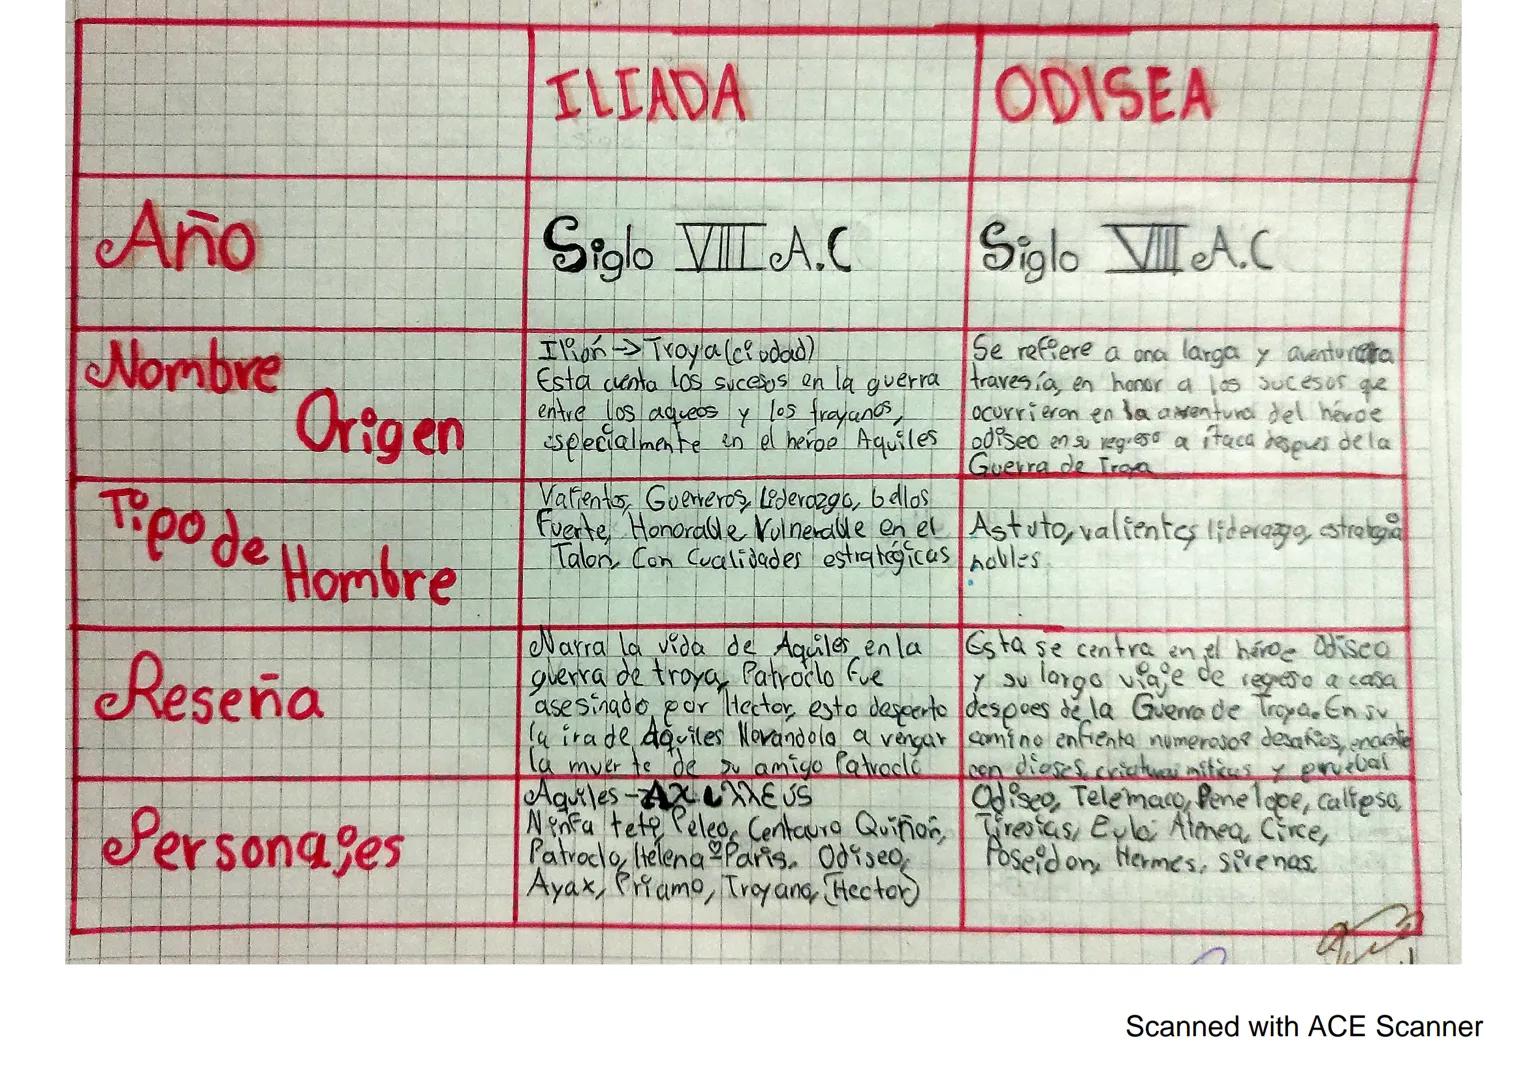 ILIADA
ODISEA
Año
Siglo VIII A.C
Siglo VIII A.C
Nombre
Origen
Ilión → Troya (ciudad)
Esta cuenta los sucesos en la guerra
entre los aqueos y los troyanos,
especialmente en el heroe Aquiles
Se refiere a una larga y aventurera
travesía, en honor a los sucesos que
ocurrieron en la aventura del héroe
odiseo en su regreso a ítaca despues de la
Guerra de Troya
Tipo de
Hombre
Valientes, Guerreros, Liderazgo, bellos
Fuerte, Honorable, Vulnerable en el
Talon, Con Cualidades estratégicas
Astuto, valientes, liderazgo, estrategia
nobles.
Reseña
Narra la vida de Aquiles en la
guerra de troya, Patroclo fue
asesinado por Hector, esto desperto
la ira de Aquiles llevandolo a vengar
la muerte de su amigo Patroclo
Esta se centra en el héroe Odiseo
y su largo viaje de regreso a casa
despues de la Guerra de Troya. En su
camino enfrenta numerosos desafios,
con dioses, criaturas miticas y pruebas
Personajes
Aquiles - AXιλλEUS
Ninfa tetis, Peleo, Centauro Quirron,
Patroclo, Helena Paris. Odiseo,
Ayax, Priamo, Troyano, (Hector)
Odiseo, Telemaco, Penelope, calipso,
Tiresias, Atenea, Circe,
Poseidon, Hermes, sirenas.
Scanned with ACE Scanner